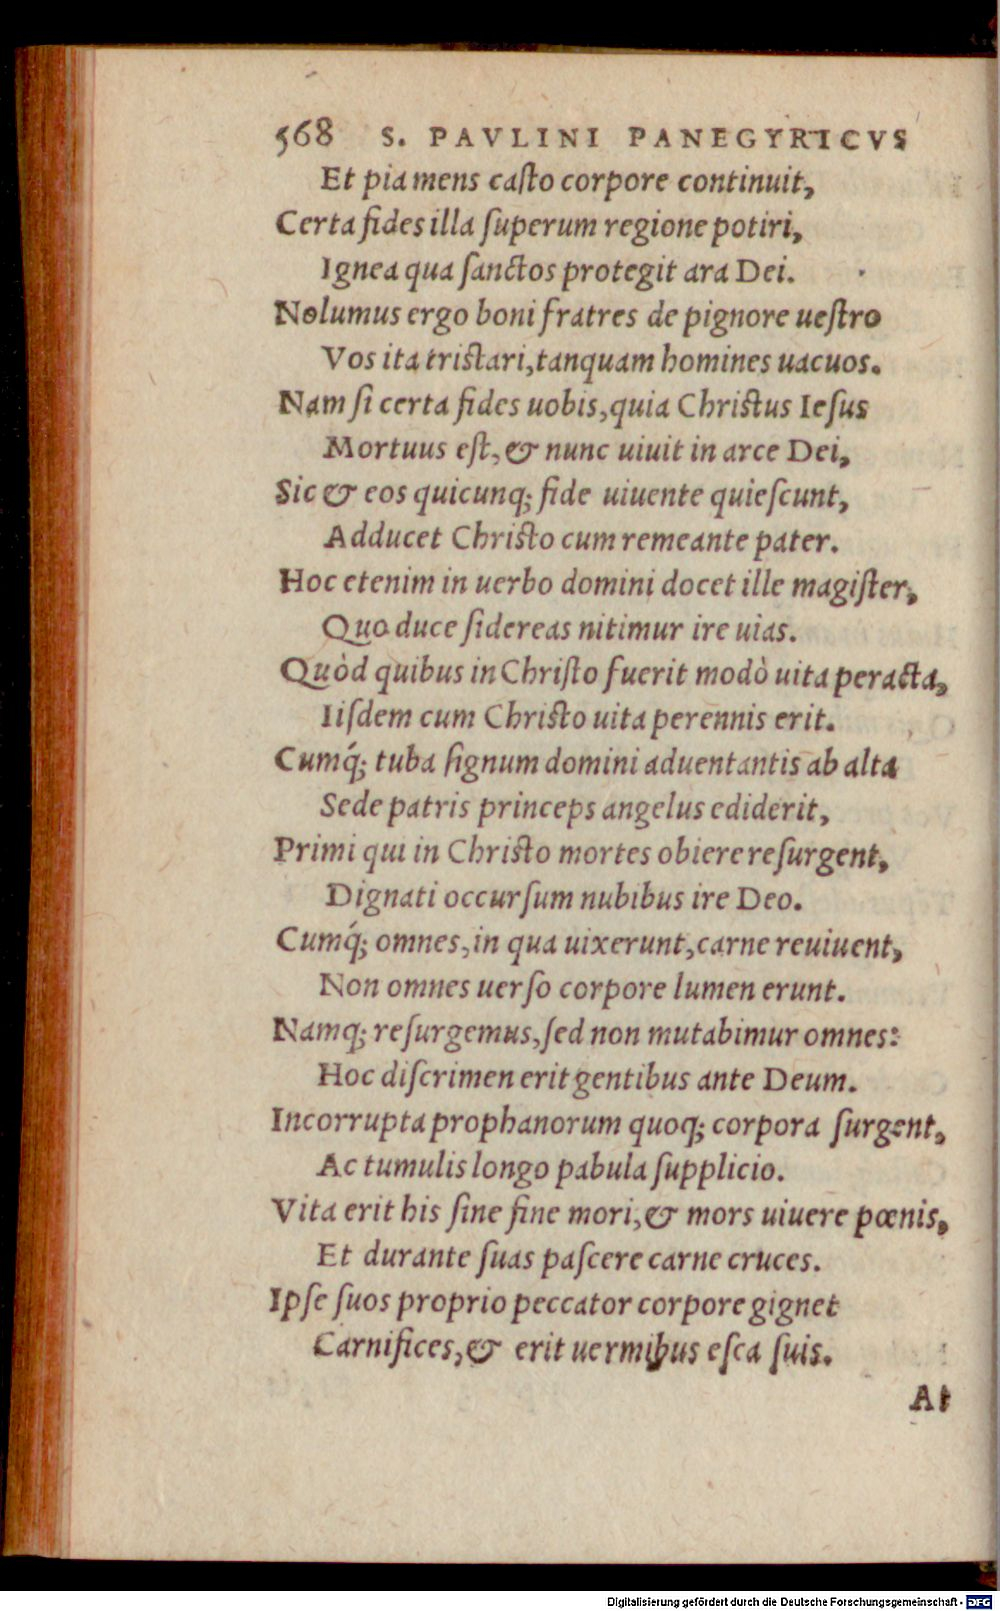 568 S. PAVLINI PANEGYRICVS
Et pia mens caſto corpore continuit,
Certa fides illa ſuperum regione potiri,
Ignea qua ſanctos protegit ara Dei.
Nolumus ergo boni fratres de pignore ueſtro
Vos ita triſtari, tanquam homines uacuos.
Nam ſi certa fides uobis, quia Chriſtus Ieſus
Mortuus eſt, & nunc uiuit in arce Dei,
Sic & eos quicunq; fide uiuente quieſcunt,
Adducet Chriſto cum remeante pater.
Hoc etenim in uerbo domini docet ille magiſter,
Quo duce ſidereas nitimur ire uias.
Quòd quibus in Chriſto fuerit modò uita peracta,
Iiſdem cum Chriſto uita perennis erit.
Cumq́; tuba ſignum domini aduentantis ab alta
Sede patris princeps angelus ediderit,
Primi qui in Chriſto mortes obiere reſurgent,
Dignati occurſum nubibus ire Deo.
Cumq́; omnes, in qua uixerunt, carne reuiuent,
Non omnes uerſo corpore lumen erunt.
Namq; reſurgemus, ſed non mutabimur omnes:
Hoc diſcrimen erit gentibus ante Deum.
Incorrupta prophanorum quoq; corpora ſurgent,
Ac tumulis longo pabula ſupplicio.
Vita erit his ſine fine mori, & mors uiuere pœnis,
Et durante ſuas paſcere carne cruces.
Ipſe ſuos proprio peccator corpore gignet
Carnifices, & erit uermibus eſca ſuis.
At
Digitalisierung gefördert durch die Deutsche Forschungsgemeinschaft - DFG